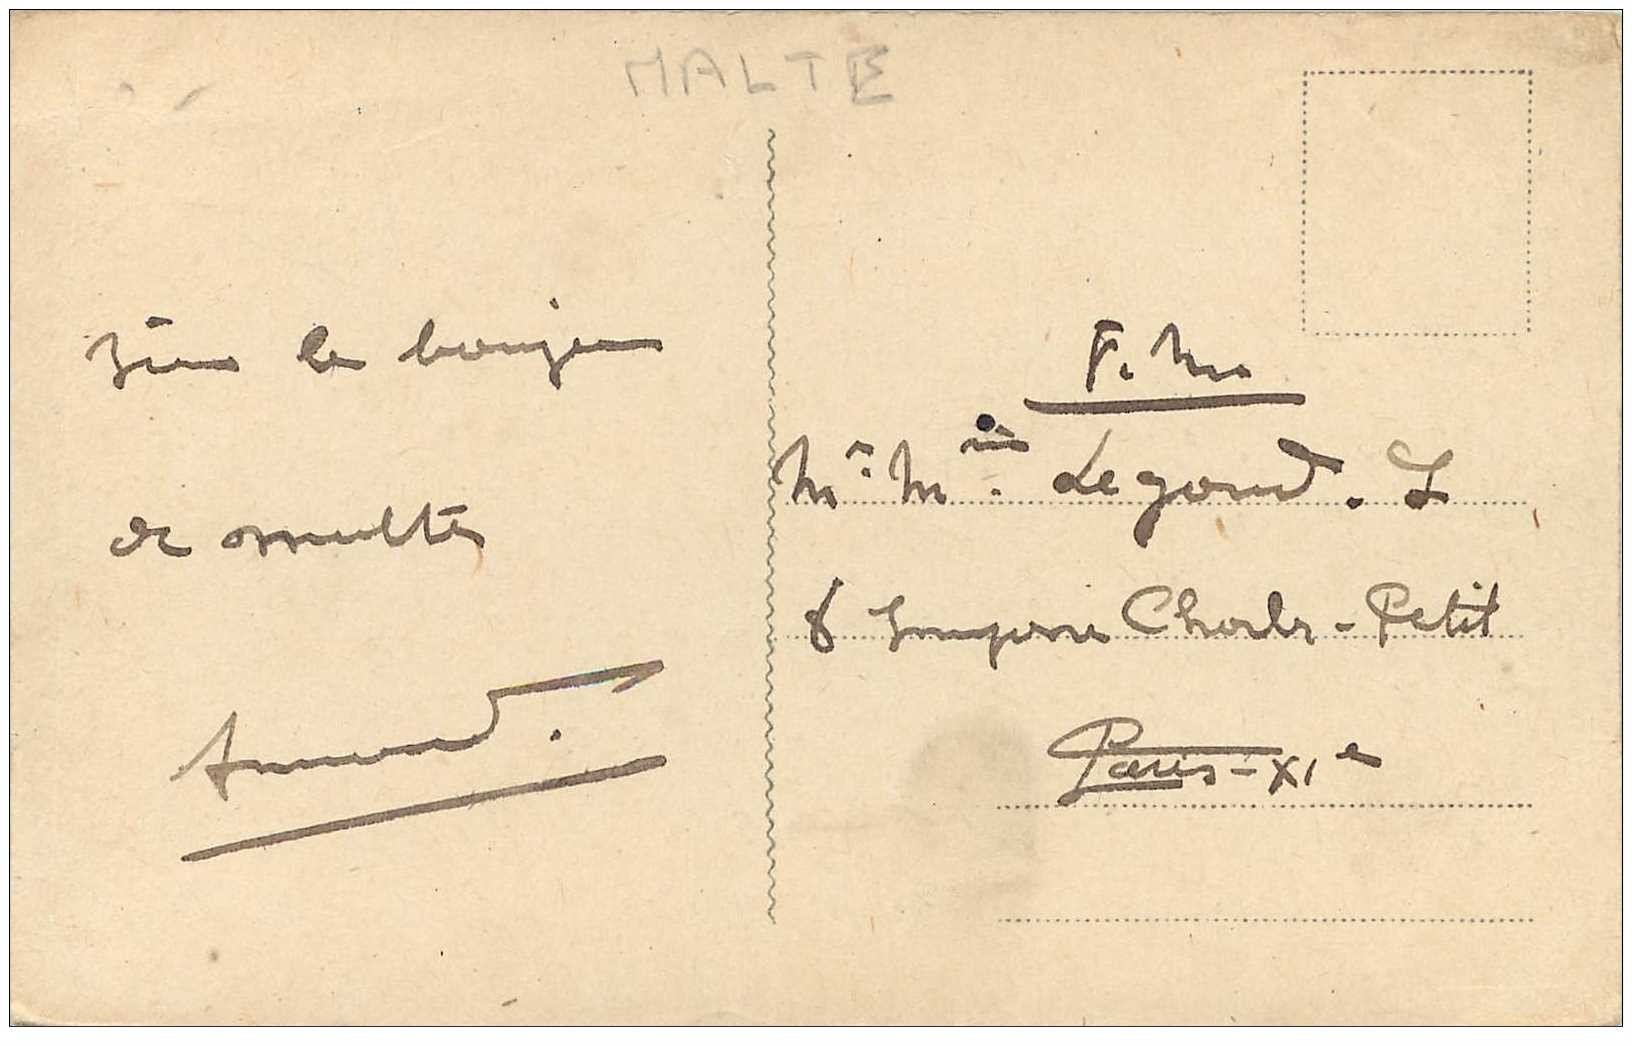 MALTE
le bonjour
de malte
Armand.
F. M.
Mr. Mme. Legoud. L
8 Impasse Charles-Petit
Paris-XIe